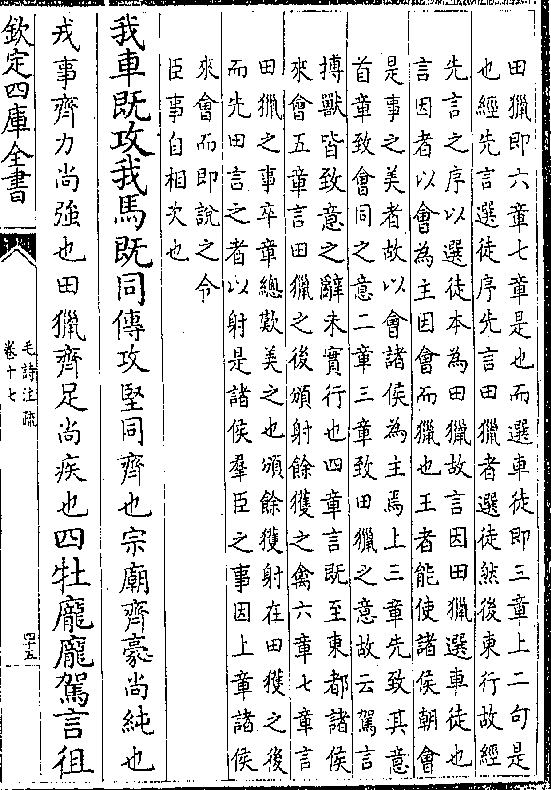 田獵即六章七章是也而選車徒即三章上二句是
也經先言選徒序先言田獵者選徒然後東行故經
先言之序以選徒本為田獵故言因田獵選車徒也
言因者以會為主因會而獵也王者能使諸侯朝會
是事之美者故以會諸侯為主焉上三章先致其意
首章致會同之意二章三章致田獵之意故云駕言
搏獸皆致意之辭未實行也四章言既至東都諸侯
來會五章言田獵之後頒射餘獲之禽六章七章言
田獵之事卒章總歎美之也頒餘獲射在田獲之後
而先田言之者以射是諸侯羣臣之事因上章諸侯
來會而即說之令
臣事自相次也
我車既攻我馬既同傳攻堅同齊也宗廟齊豪尚純也
戎事齊力尚強也田獵齊足尚疾也四牡龐龐駕言徂
欽定四庫全書
毛詩注疏
卷十七
四十五